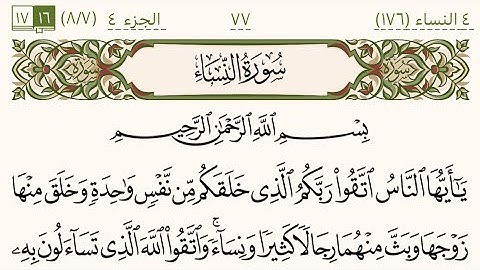 ٤ النساء (١٧٦) ٧٧ الجزء ٤ (٨/٧) ١٦ ١٧
سُورَةُ النِّسَاءِ
بِسْمِ اللَّهِ الرَّحْمَٰنِ الرَّحِيمِ
يَٰٓأَيُّهَا ٱلنَّاسُ ٱتَّقُوا۟ رَبَّكُمُ ٱلَّذِى خَلَقَكُم مِّن نَّفْسٍ وَٰحِدَةٍ وَخَلَقَ مِنْهَا
زَوْجَهَا وَبَثَّ مِنْهُمَا رِجَالًا كَثِيرًا وَنِسَآءً ۚ وَٱتَّقُوا۟ ٱللَّهَ ٱلَّذِى تَسَآءَلُونَ بِهِۦ